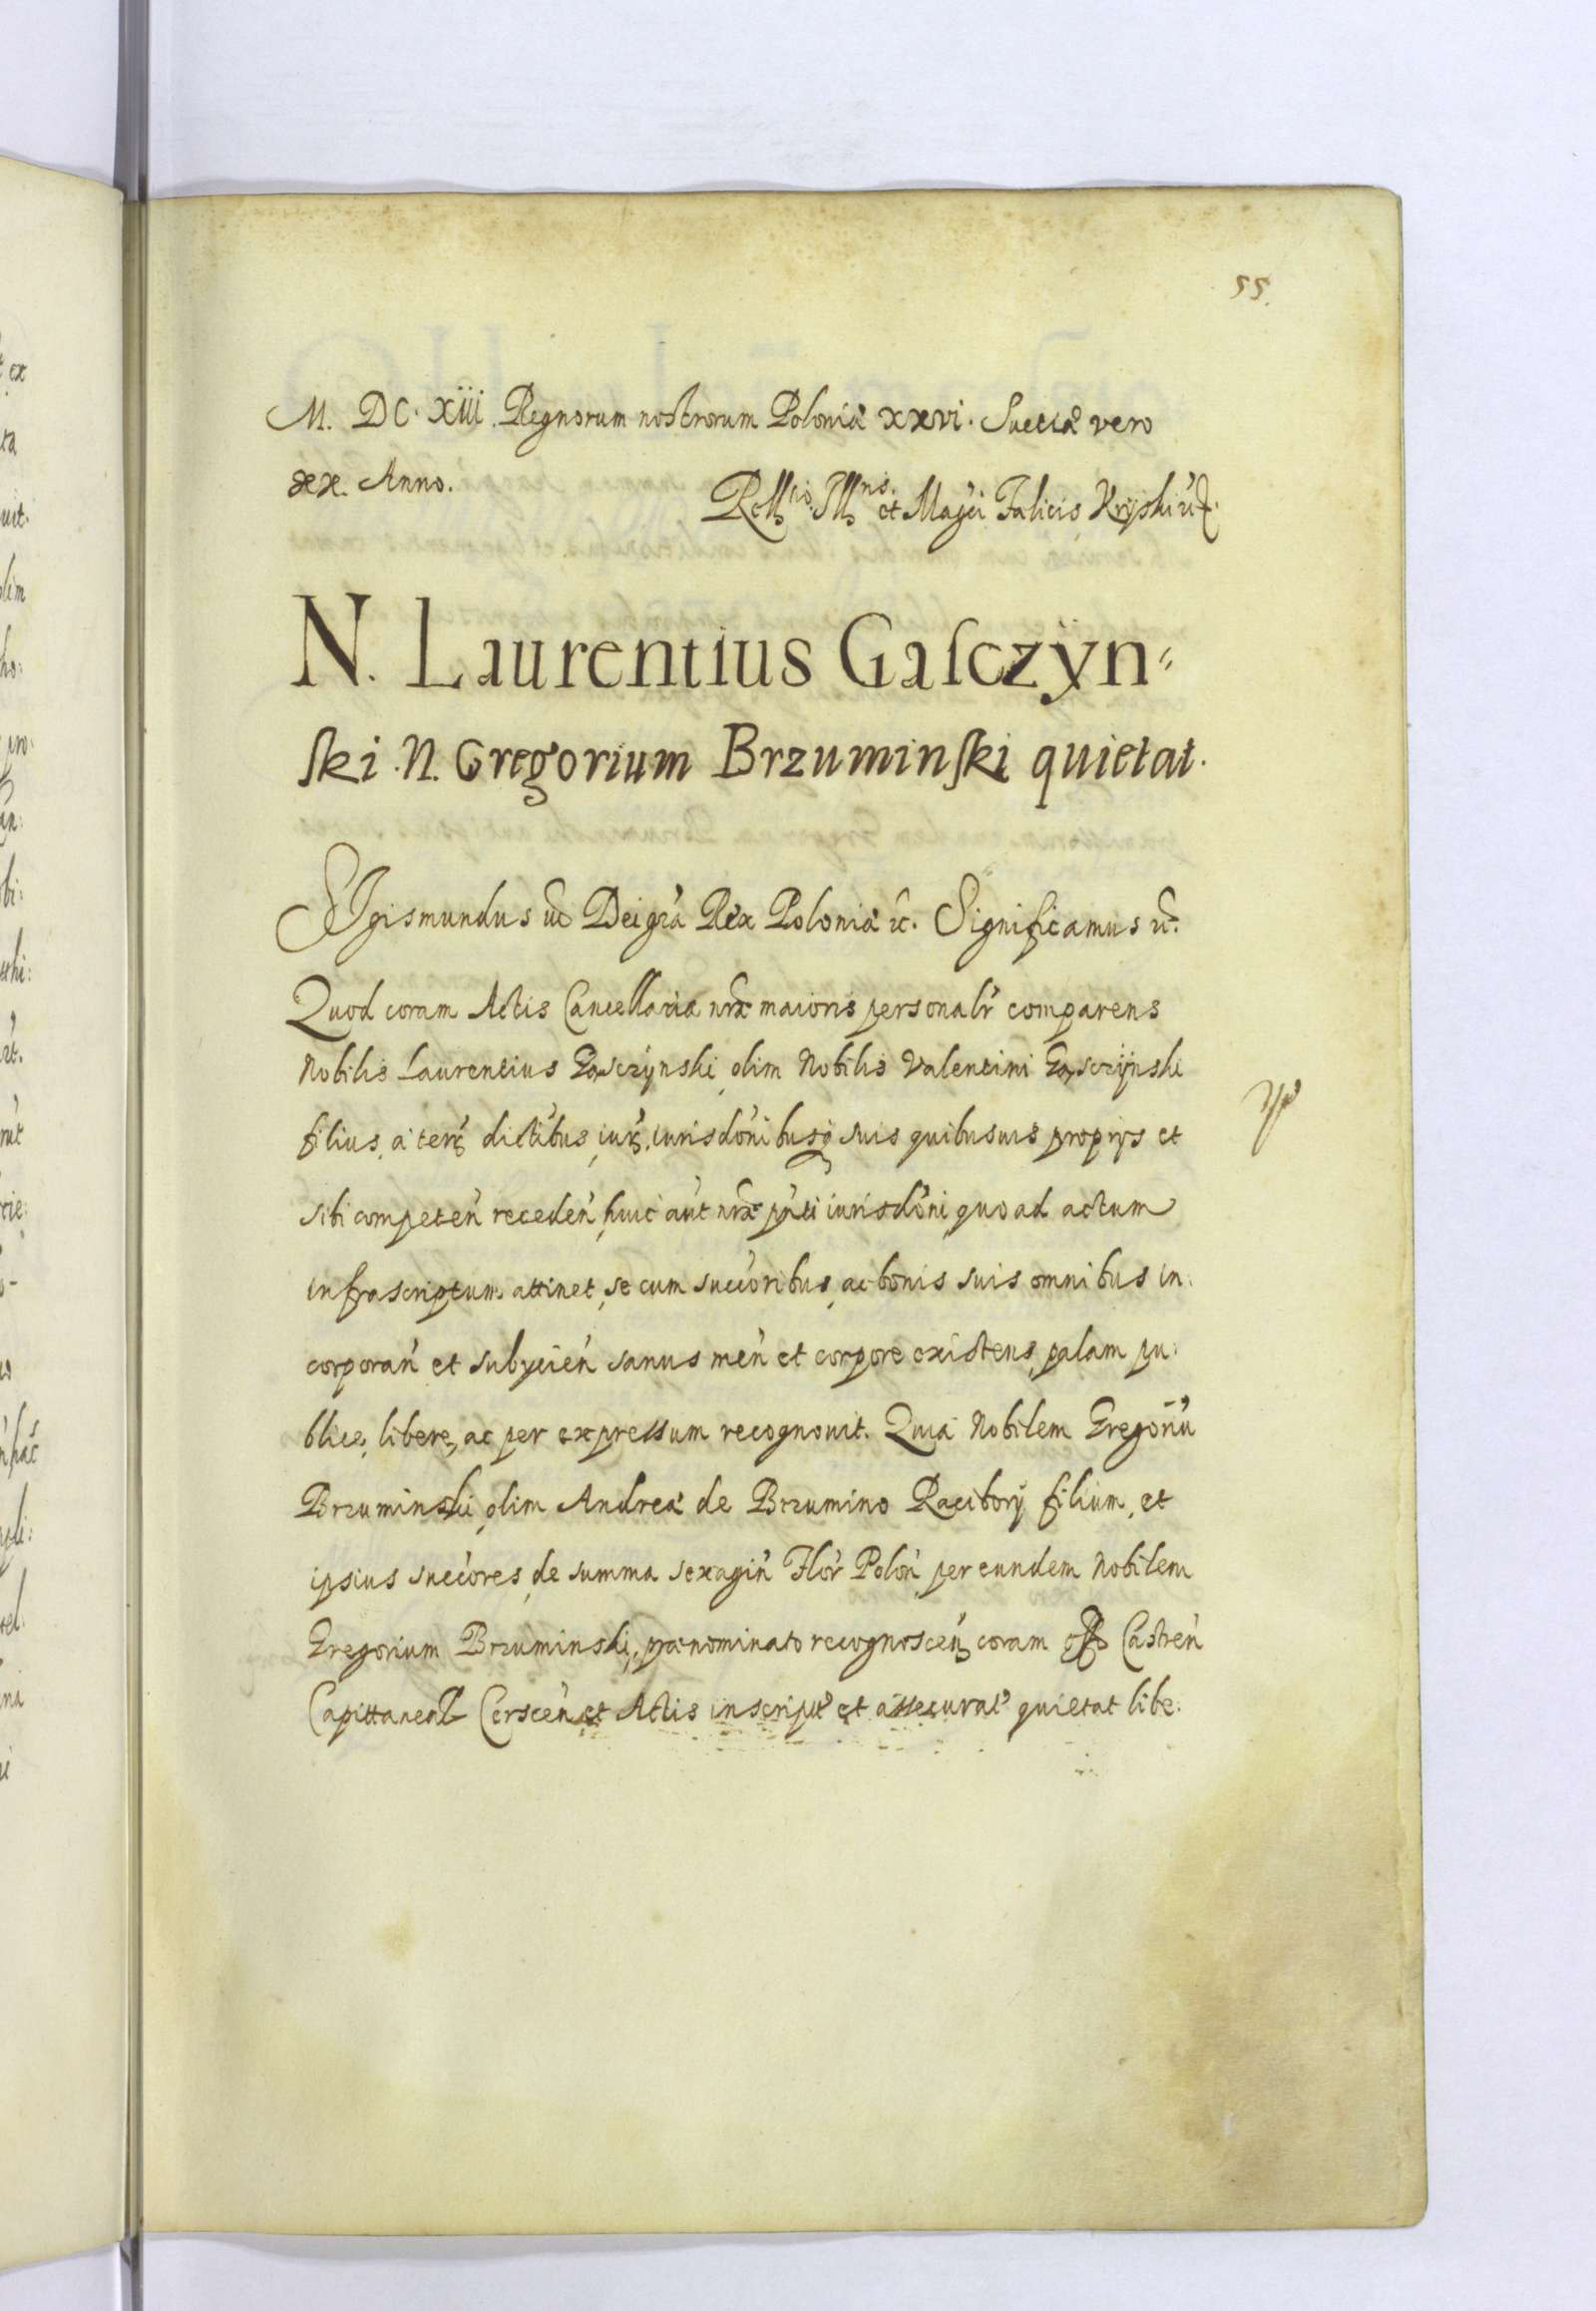 55.
M. DC. Xiii. Regnorum nostrorum Poloniæ xxvi. Sueciæ vero
xx. Anno.
Rel͞l͞tio Ill͞ris. et Magci Fælicis Kryski ućz.
N. Laurentius Gaſczÿn⸗
ſki .N. Gregorium Brzuminſki quietat.
SIgismundus uć Dei gr͞a Rex Poloniæ uć. Significamus uć.
Quod coram Actis Cancellariæ nr͞æ maioris personalr͞ comparens
Nobilis Laurentius Gasczÿnski olim Nobilis Valentini Gasczÿnski
filius, a terr͞ dictibus, iur͞, iurisdo͞nibusq suis quibusuis proprÿs et
sibi competen͞ receden͞, huic aut͞ nr͞æ pn͞ti iurisdo͞ni, quo ad actum
infrascriptum attinet, se cum succ͞oribus, ac bonis suis omnibus in:
corporan͞ et subÿcien͞ sanus men͞ et corpore existens, palam pu:
blice, libere, ac per expressum recognouit. Quia Nobilem Gregoriu͞
Brzuminski, olim Andreæ de Brzumino Raciborÿ filium, et
ipsius succ͞ores, de summa sexagin͞ Flor͞ Polon͞ per eundem Nobilem
Gregorium Brzuminski, prænominato recognoscen͞, coram off͞o Castren͞
Capittanen͞ Cerscen͞ et Actis inscript͞ et assecurat͞ quietat libe: